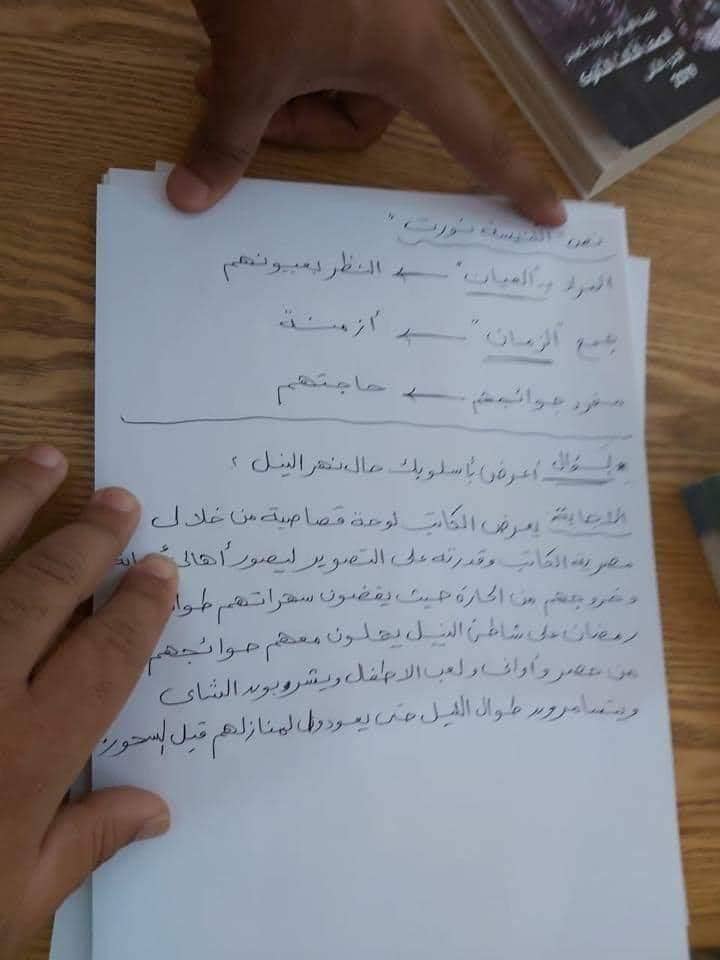 نص "
المراد بـ "العيان" ← النظر بعيونهم
جمع "الزمان" ← أزمنة
مفرد حوائجهم ← حاجتهم
* السؤال أعرض بأسلوبك حال نهر النيل ؟
الاجابة يعرض الكاتب لوحة قصاصية من خلال
الكاتب وقدرته على التصوير ليصور أهالي
وخروجهم من الحارة حيث يقضون سهراتهم
رمضان على شاطئ النيل يحلون معهم حوائجهم
من حصر وأواني ولعب الاطفل ويشربون الشاى
ويتسامرون طوال اليل حتى يعودوا لمنازلهم قبل السحور.
2020